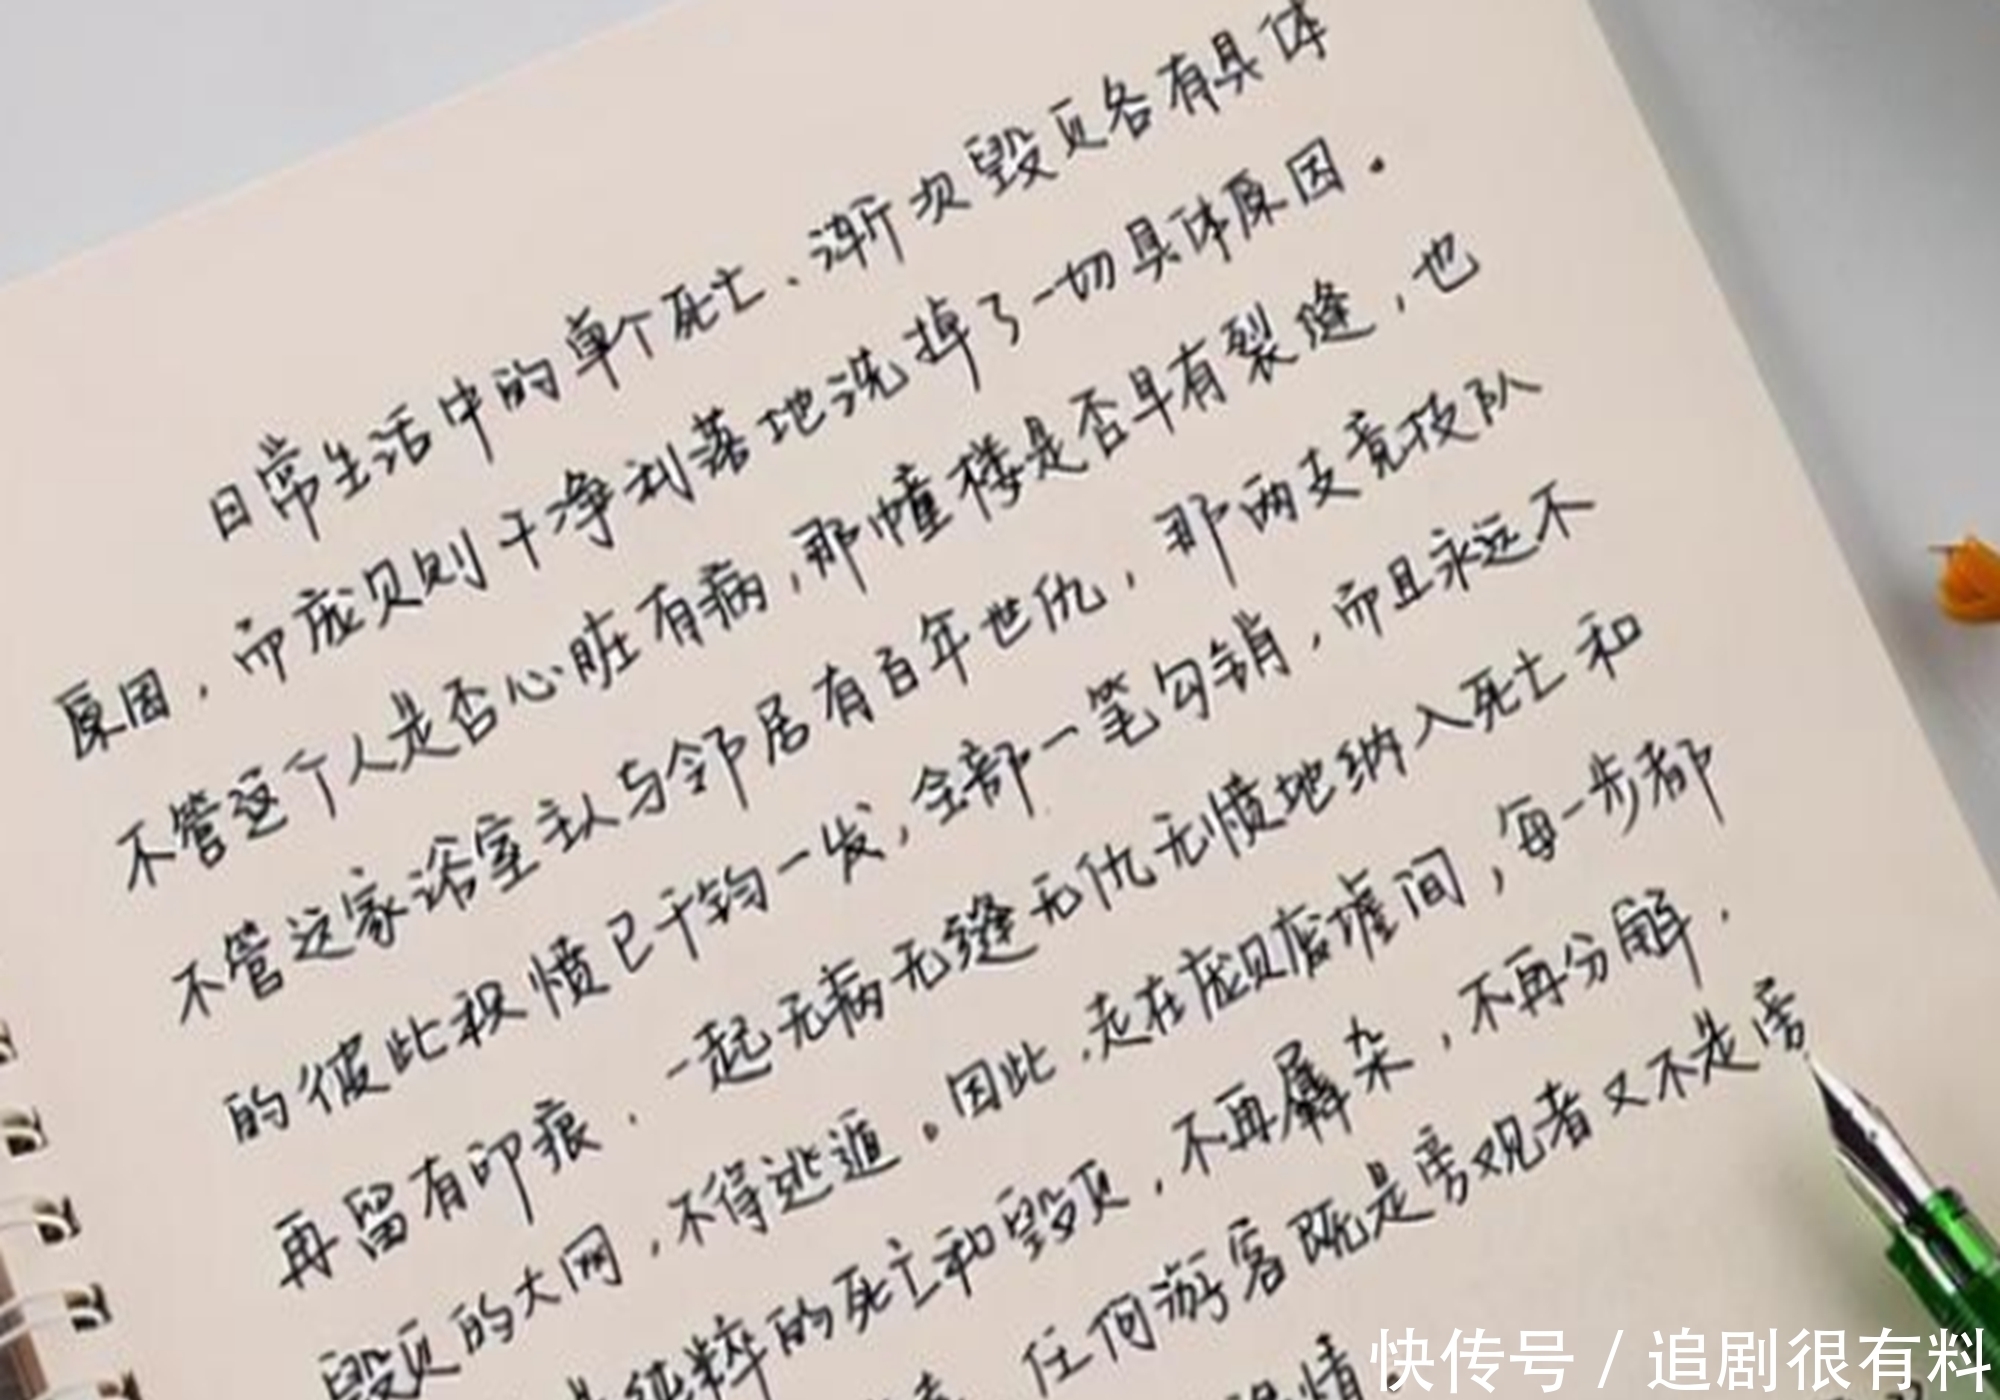 日常生活中的单个死亡、渐次毁页各有具体
原因，而庞贝则干净利落地洗掉了一切具体原因.
不管这个人是否心脏有病，那幢楼是否早有裂缝，也
不管这家浴室主人与邻居有百年世仇，那两支竞技队
的彼此积愤已千钧一发，全部一笔勾销，而且永远不
再留有印痕.一起无病无缝无仇无愤地纳入死亡和
毁页的大网，不得逃遁。因此，走在庞贝废墟间，每一步都
纯粹的死亡和毁页，不再羼杂，不再分解，
任何游客既是旁观者又不是旁
情.
快传号/追剧很有料